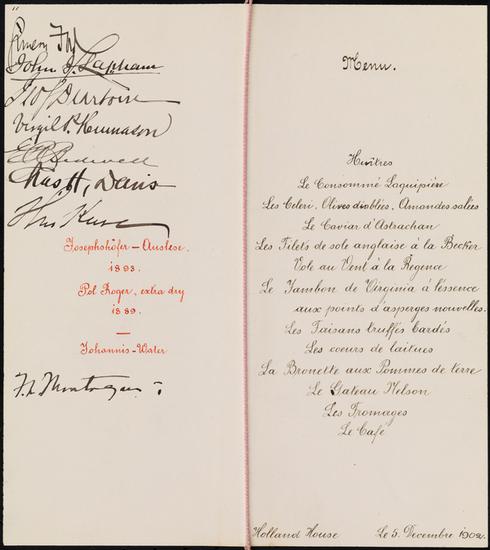 John J. Lapham
Virgil P.
Chas H. Davis
Josephshöfer - Auslese
1893.
Pol Roger, extra dry
1889.
Johannis-Water
Menu.
Huîtres
Le Consommé Laguipière
Les Céleri, Olives diablés, Amandes salées
Le Caviar d'Astrachan
Les Filets de sole anglaise à la Becker
Vole au Vent à la Regence
Le Jambon de Virginia à l'essence
aux points d'asperges nouvelles.
Les Faisans truffés Cardés
Les coeurs de laitues
La Bronette aux Pommes de terre
Le Gateau Nelson
Les Fromages
Le Café
Holland House Le 5. Decembre 1902.